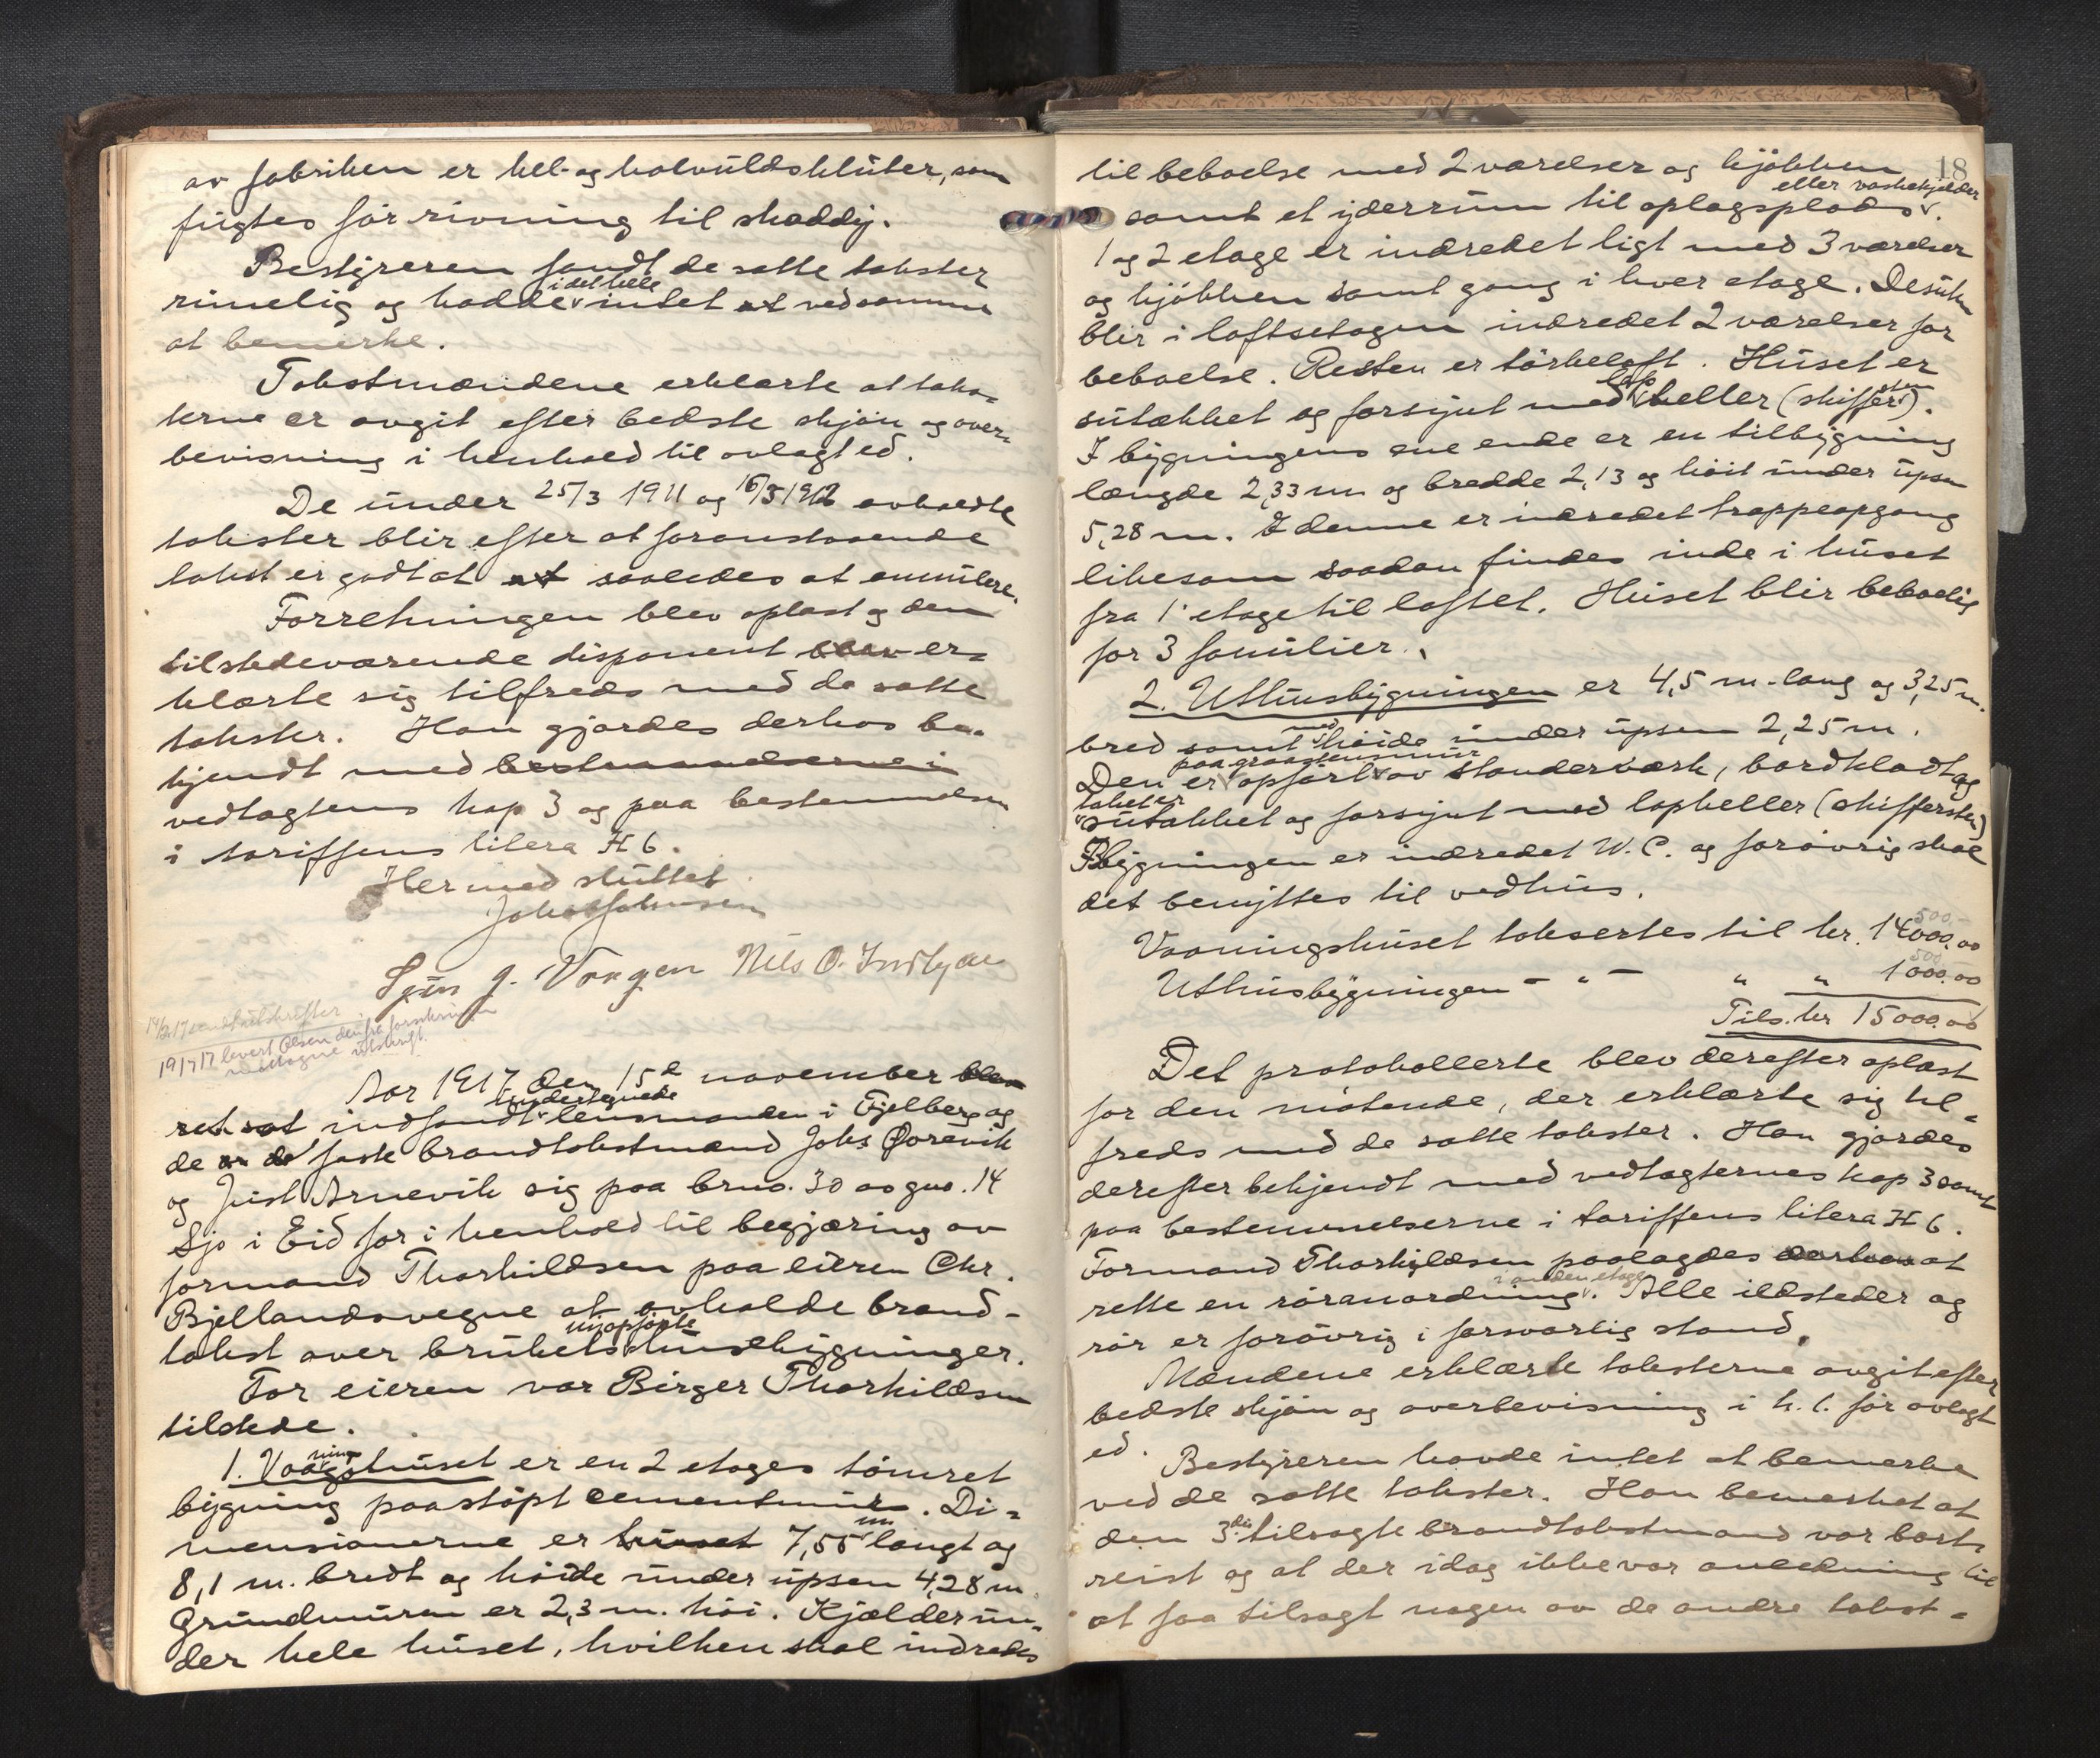 av fabriken er hel- og halvuldsklúter, som
fúgtes før rivning til skoddy.
Bestyreren fandt de satte takster
i det hele
rimelig og hadde intet at ved samme
at bemerke.
Takstmændene erklærte at taks-
terne er avgit efter bedste skjøn og over-
bevisning i henhold til avlagt ed.
De únder 25/3 1911 og 16/5 1912 avholdte
takster blir efter at foranstaaende
takst er godtat at saaledes at annúlere.
Forretningen blev oplæst og den
tilstedeværende disponent blev er-
klærte sig tilfreds med de satte
takster. Han gjordes derhos be-
kjendt med bestemmelserne i
vedtagtens kap 3 og paa bestemmelsen
i tariffens litera H 6.
Hermed slúttet.
Jakob Johnsen
J. Vaagen Nils O.
19/7 17 levert Olsen den fra forsikringen
mottagne útskrift.
Aar 1917 den 15de november blev
undertegnede
ret sat indfandt lensmanden i Fjelberg og
de faste brandtakstmænd Johs Ørevik
og Just Arnevik sig paa brno. 30 av gno. 14
Sjo i Eid for i henhold til begjæring av
formand Thorkildsen paa eieren Chr.
Bjellands vegne at avholde brand-
nyopførte
takst over brúkets húsebygninger.
For eieren var Birger Thorkildsen
tilstede.
ning
1. Vaagshúset er en 2 etages tømret
bygning paa støpt cementmúr. Di-
m
mensionerne er húset 7,55 langt og
8,1 m. bredt og høide únder úpsen 4,28 m.
Grúndmúren er 2,3 m. høi. Kjælder ún-
der hele húset, hvilken skal indredes
18
til beboelse med 2 værelser og kjøkken
eller vaskekjelder
samt et yderrúm til oplagsplads.
1 og 2 etage er indredet ligt med 3 værelser
og kjøkken samt gang i hver etage. Desúten
blir i loftsetagen indredet 2 værelser for
beboelse. Resten er tørkeloft. Húset er
lap sten
sútækket og forsynt med heller (skiffer).
I bygningens ene ende er en tilbygning
længde 2,33 m og bredde 2,13 og høit únder úpsen
5,28 m. I denne er indredet trappeopgang
likesom saadan findes inde i húset
fra 1' etage til loftet. Húset blir beboelig
for 3 familier.
2. Uthúsbygningen er 4,5 m. lang og 3,25 m.
med
bred samt høide únder úpsen 2,25 m.
paa graastensmúr
Den er opført av stenderværk, bordklædt og
taket er
sútækket og forsynt med lapheller (skiffersten)
I bygningen er indredet W. C. og forøvrig skal
det benyttes til vedhús.
500.-
Vaaningshúset taksertes til kr. 14000.00
500.-
Uthúsbygningen - " - " " 1000.00
Tils. kr 15000.00
Det protokollerte blev derefter oplæst
for den møtende, der erklærte sig til-
freds med de satte takster. Han gjordes
derefter bekjendt med vedtagternes kap 3 samt
paa bestemmelserne i tariffens litera H 6.
Formand Thorkildsen paalagdes derhos at
i anden etage
rette en røranordning. Alle ildsteder og
rør er forøvrig i forsvarlig stand.
Mændene erklærte taksterne avgit efter
bedste skjøn og overbevisning i h. t. før avlagt
ed.
Bestyreren havde intet at bemerke
ved de satte takster. Han bemerket at
den 3die tilsagte brandtakstmand var bort-
reist og at der idag ikke var anledning til
at faa tilsagt nogen av de andre takst-